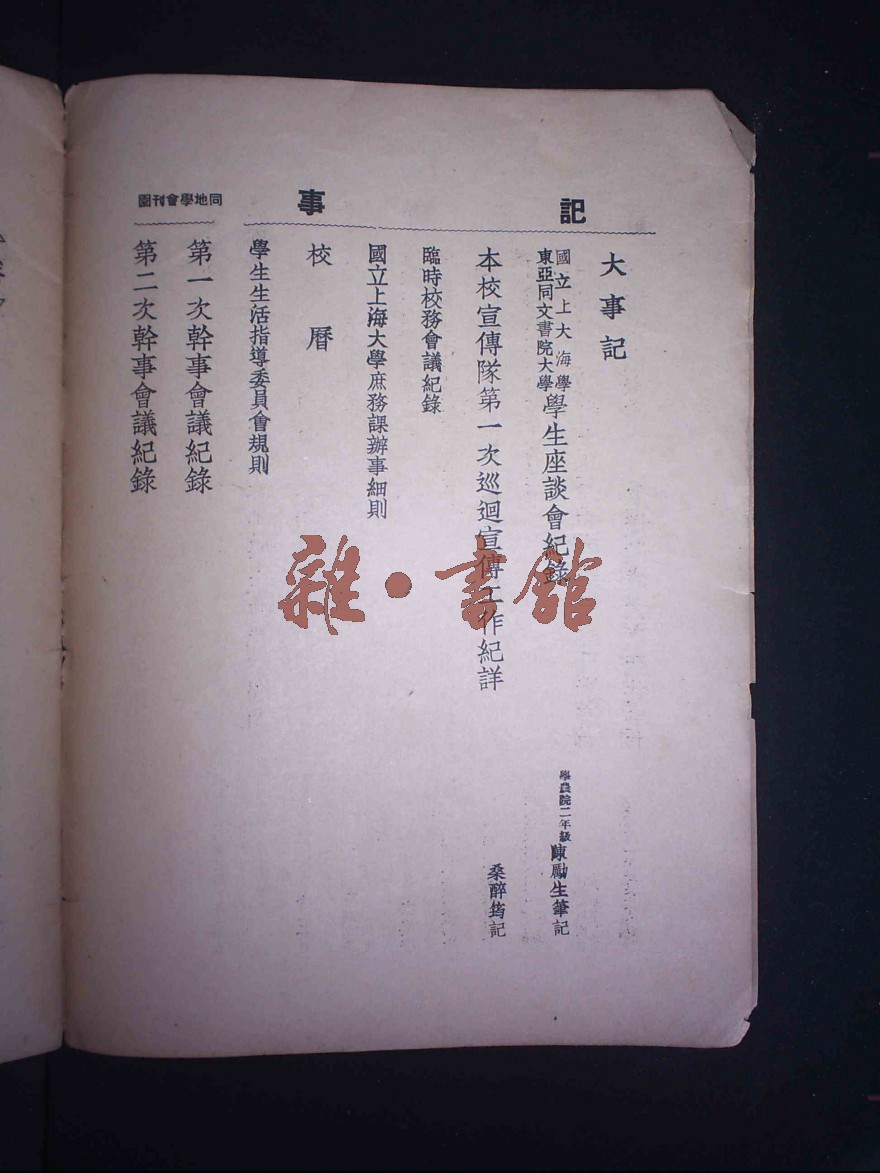 記事
大事記
國立上大海學
東亞同文書院大學
學生座談會紀錄
學農院二年級陳勵生筆記
本校宣傳隊第一次巡迴宣傳工作紀詳
桑醉筠記
臨時校務會議紀錄
國立上海大學庶務課辦事細則
校曆
學生生活指導委員會規則
同地學會刊園
第一次幹事會議紀錄
第二次幹事會議紀錄
雜·書館